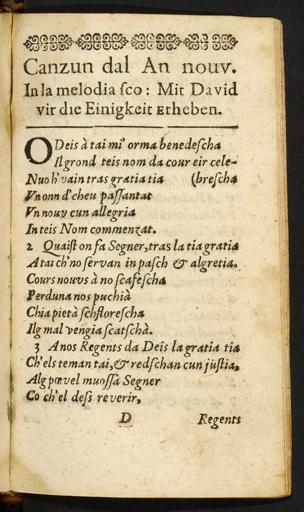 Canzun dal An nouv.
In la melodia sco: Mit David
vir die Einigkeit Erheben.
O Deis à tai mi' orma benedescha
Il grond teis nom da cour eir cele-
Nuo h'vain tras gratia tia (brescha
Vn onn d'cheu passantat
Vn nouv cun allegria
In teis Nom commenzat.
2 Quaist on fa Segner, tras la tia gratia
A tai ch'no servan in pasch & algretia.
Cours nouvs à no scafescha
Perduna nos puchià
Chia pietà schflorescha
Ilg mal vengia scatschà.
3 A nos Regents da Deis la gratia tia
Ch'els teman tai, & redschan cun justia,
Alg pœvel muossa Segner
Co ch'el dess reverir,
D Regents